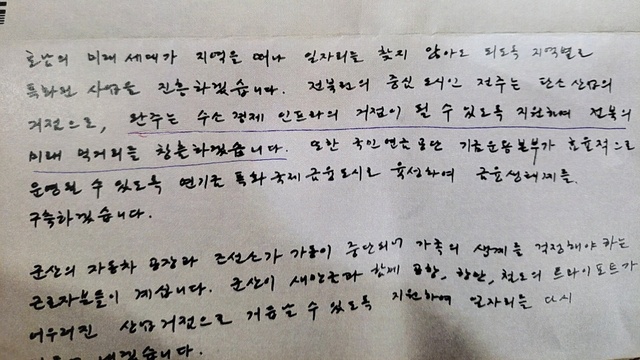 호남의 미래 세대가 지역을 떠나 일자리를 찾지 않아도 되도록 지역별로
특화된 사업을 진흥하겠습니다. 전북권의 중심 도시인 전주는 탄소산업의
거점으로, 완주는 수소경제 인프라의 거점이 될 수 있도록 지원하여 전북의
미래 먹거리를 창출하겠습니다. 또한 국민연금공단 기금운용본부가 효율적으로
운영될 수 있도록 연기금 특화 국제금융도시로 육성하여 금융생태계를
구축하겠습니다.
군산의 자동차 공장과 조선소가 가동이 중단되어 가족의 생계를 걱정해야 하는
근로자분들이 계십니다. 군산이 새만금과 함께 공항, 항만, 철도의 트라이포트가
어우러진 산업거점으로 거듭날 수 있도록 지원하여 일자리를 다시
겠습니다.